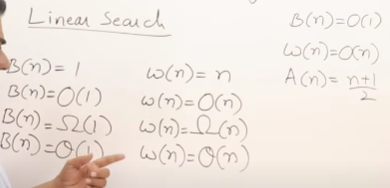 Linear Search
B(n) = 1
B(n) = O(1)
B(n) = Ω(1)
B(n) = Θ(1)
w(n) = n
w(n) = O(n)
w(n) = Ω(n)
w(n) = Θ(n)
B(n) = O(1)
w(n) = O(n)
A(n) = n+1
2